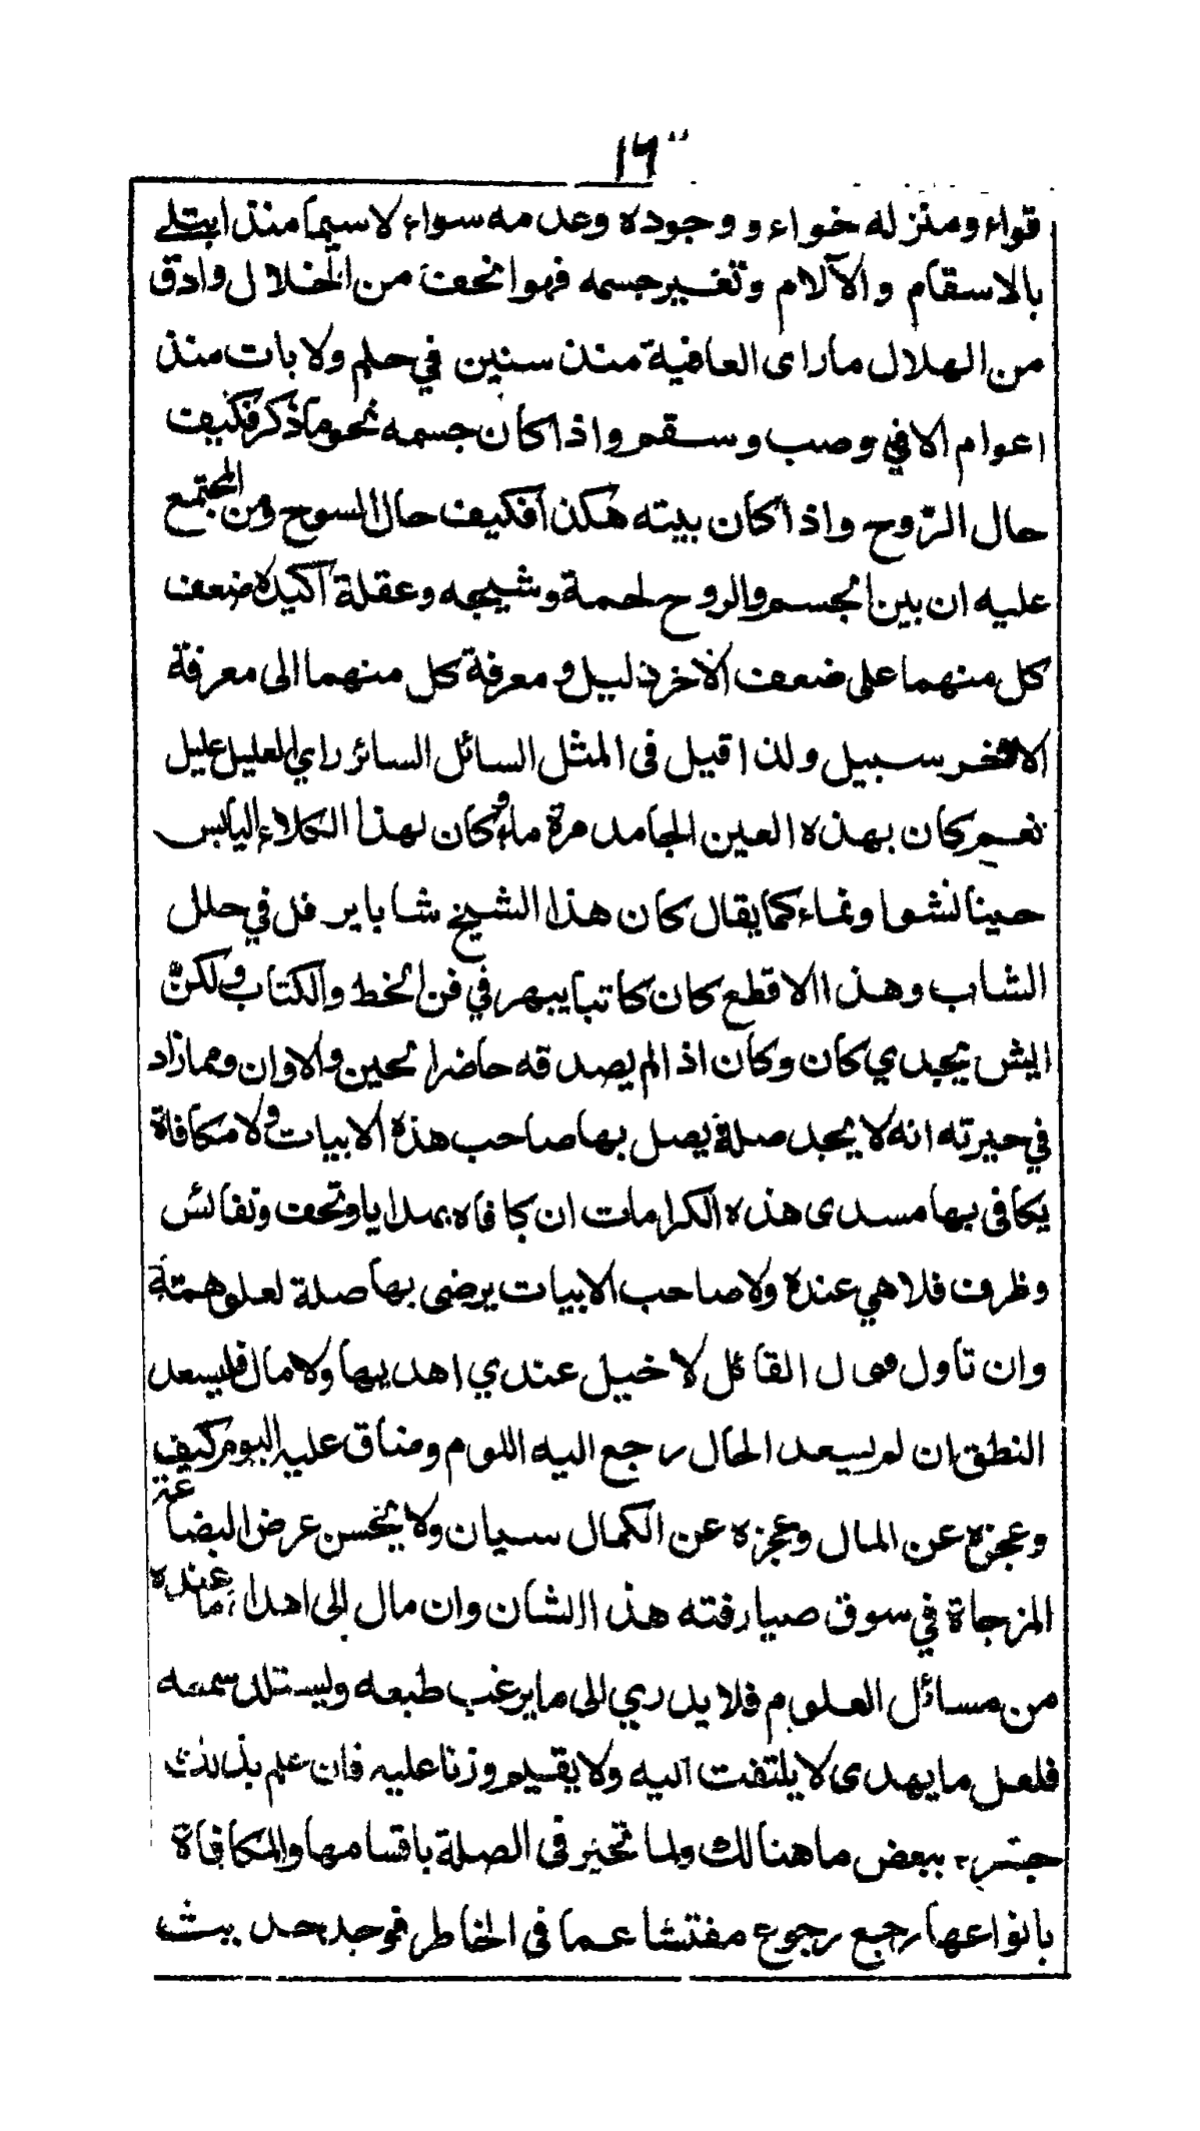 ١٦
قواء ومنزله خواء و وجوده وعدمه سواء لاسيما منذ ابتلے
بالاسقام والآلام وتغير جسمه فهو انحف من الخلال وادق
من الهلال ما راى العافية منذ سنين في حلم ولا بات منذ
اعوام الا في وصب وسقم واذا كان جسمه نحو ما ذكر فكيف
حال الرّوح واذا كان بيته هكذا فكيف حال السوح ومن المجتمع
عليه ان بين الجسم والروح لحمة وشيجه وعقلة اكيدة ضعف
كل منهما على ضعف الآخر دليل و معرفة كل منهما الى معرفة
الآخر سبيل ولذا قيل فى المثل السائل السائر راي العليل عليل
نعم كان بهذه العين الجامد مرة ماء وكان لهذا الكلاء اليابس
حينا نشوا ونماء كما يقال كان هذا الشيخ شابا يرفل في حلل
الشاب وهذا الاقطع كان كاتبا يبهر في فن الخط والكتاب ولكنّ
ايش يجدي كان وكان اذا لم يصدقه حاضر الحين والاوان ومما زاد
في حيرته انه لا يجد صلة يصل بها صاحب هذه الابيات ولا مكافاة
يكافى بها مسدى هذه الكرامات ان كافاه بهدايا وتحف ونفائس
وظرف فلا هي عنده ولا صاحب الابيات يرضى بها صلة لعلو همته
وان تاول قول القائل لا خيل عندي اهديها ولا مال فليسعد
النطق ان لم يسعد الحال رجع اليه اللوم وضاق عليه اليوم كيف
وعجزه عن المال وعجزه عن الكمال سيان ولا يحسن عرض البضاعة
المزجاة في سوق صيارفته هذا الشان وان مال الى اهداء ما عنده
من مسائل العلوم فلا يدري الى ما يرغب طبعه ويستلذ سمعه
فلعل ما يهدى لا يلتفت اليه ولا يقيم وزنا عليه فان علم بذالك
ببعض ما هنالك ولما تحير فى الصلة باقسامها والمكافاة
بانواعها رجع رجوع مفتشا عما فى الخاطر فوجد حديث